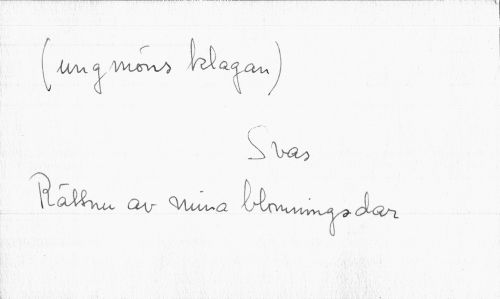 (ungmöns klagan)
Svas
Rällnu av mina blomningsdar